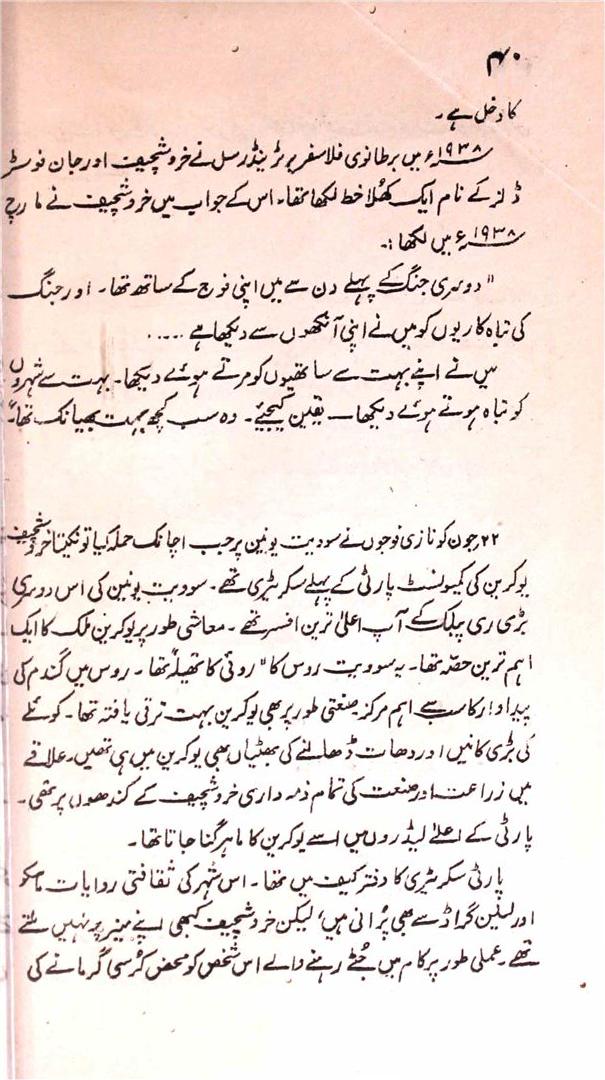 ۴۰
کا دخل ہے۔
۱۹۳۸ء میں برطانوی فلاسفر برٹرینڈرسل نے خروشچیف اور جان فوسٹر
ڈلز کے نام ایک کھلا خط لکھا تھا۔ اس کے جواب میں خروشچیف نے مارچ
۱۹۳۸ء میں لکھا:۔
"دوسری جنگ کے پہلے دن سے میں اپنی فوج کے ساتھ تھا۔ اور جنگ
کی تباہ کاریوں کو میں نے اپنی آنکھوں سے دیکھا ہے .....
میں نے اپنے بہت سے ساتھیوں کو مرتے ہوئے دیکھا۔ بہت سے شہروں
کو تباہ ہوتے ہوئے دیکھا۔ یقین کیجیے۔ وہ سب کچھ بہت بھیانک تھا۔"
۲۲ جون کو نازی فوجوں نے سوویت یونین پر جب اچانک حملہ کیا تو نکیتا خروشچیف
یوکرین کی کمیونسٹ پارٹی کے پہلے سکرٹیری تھے۔ سوویت یونین کی اس دوسری
بڑی ری پبلک کے آپ اعلیٰ ترین افسر تھے۔ معاشی طور پر یوکرین ملک کا ایک
اہم ترین حصہ تھا۔ یہ سوویت روس کا "روٹی کا تھیلہ" تھا۔ روس میں گندم کی
پیداوار کا سب سے اہم مرکز۔ صنعتی طور پر بھی یوکرین بہت ترقی یافتہ تھا۔ کوئلے
کی بڑی کانیں اور دھات ڈھالنے کی بھٹیاں بھی یوکرین میں ہی تھیں۔ علاقے
میں زراعت اور صنعت کی تمام ذمہ داری خروشچیف کے کندھوں پر تھی۔
پارٹی کے اعلےٰ لیڈروں میں اسے یوکرین کا ماہر گنا جاتا تھا۔
پارٹی سکرٹیری کا دفتر کیف میں تھا۔ اس شہر کی ثقافتی روایات ماسکو
اور لینن گراڈ سے بھی پرانی ہیں، لیکن خروشچیف کبھی اپنے میز پر نہیں ملتے
تھے۔ عملی طور پر کام میں جٹے رہنے والے اس شخص کو محض کرسی گرمانے کی